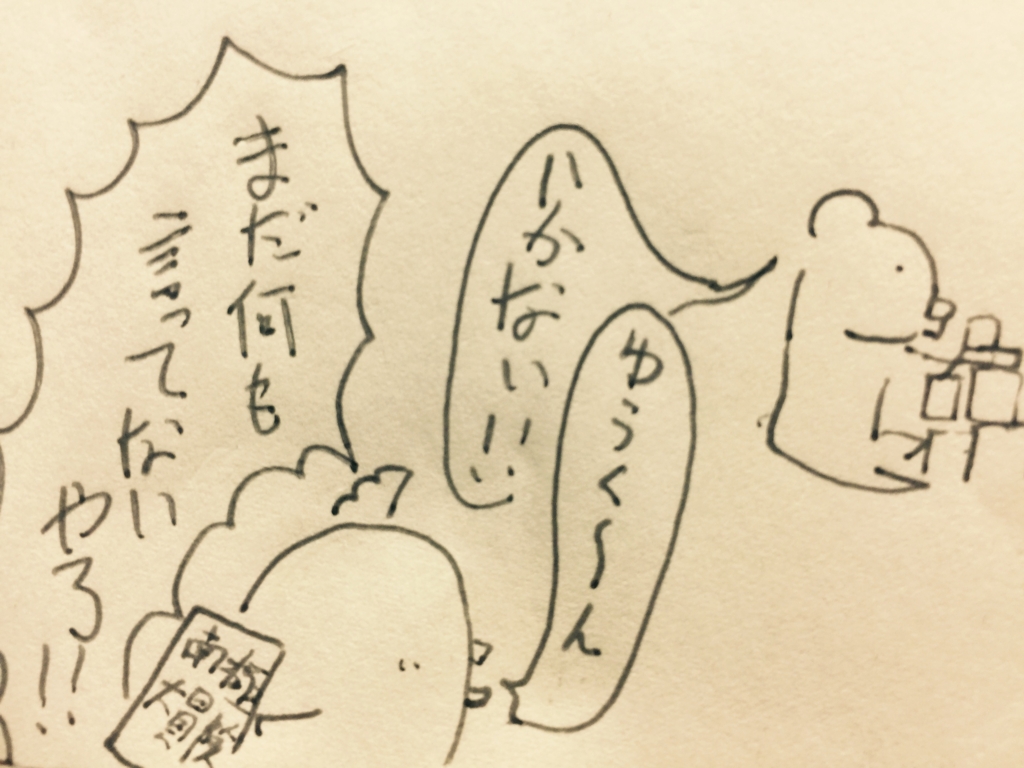 ゆうく〜ん
いかないいい
まだ何も
言ってない
やろ!!
南極
大冒険